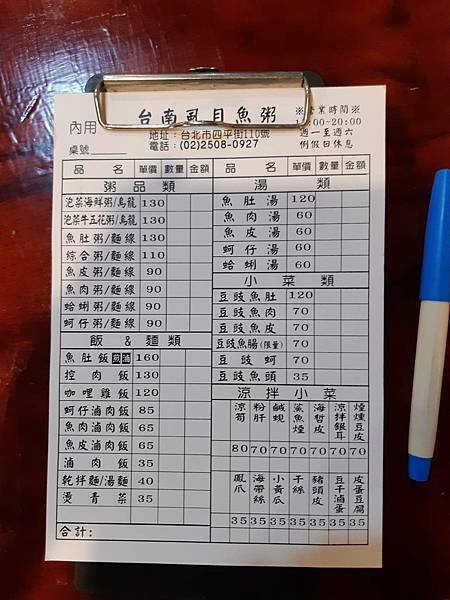 內用
桌號
台南虱目魚粥
地址：台北市四平街110號
電話：(02)2508-0927
※營業時間※
:00~20:00
週一至週六
例假日休息
品名 單價 數量 金額
粥品類
泡菜海鮮粥/烏龍 130
泡菜牛五花粥/烏龍 130
魚肚粥/麵線 130
綜合粥/麵線 110
魚皮粥/麵線 90
魚肉粥/麵線 90
蛤蜊粥/麵線 90
蚵仔粥/麵線 90
飯&麵類
魚肚飯 160
控肉飯 130
咖哩雞飯 120
蚵仔滷肉飯 85
魚肉滷肉飯 65
魚皮滷肉飯 65
滷肉飯 35
乾拌麵/湯麵 40
燙青菜 35
合計：
品名 單價 數量 金額
湯類
魚肚湯 120
魚肉湯 60
魚皮湯 60
蚵仔湯 60
蛤蜊湯 60
小菜類
豆豉魚肚 120
豆豉魚肉 70
豆豉魚皮 70
豆豉魚腸(限量) 70
豆豉蚵 70
豆豉魚頭 35
涼拌小菜
涼筍 80
粉肝 70
鹹蜆 70
鯊魚煙 70
海哲皮 70
涼拌銀耳 70
煙燻豆皮 70
鳳爪 35
海帶絲 35
小黃瓜 35
干絲 35
豬頭皮 35
豆干滷蛋 35
皮蛋豆腐 35